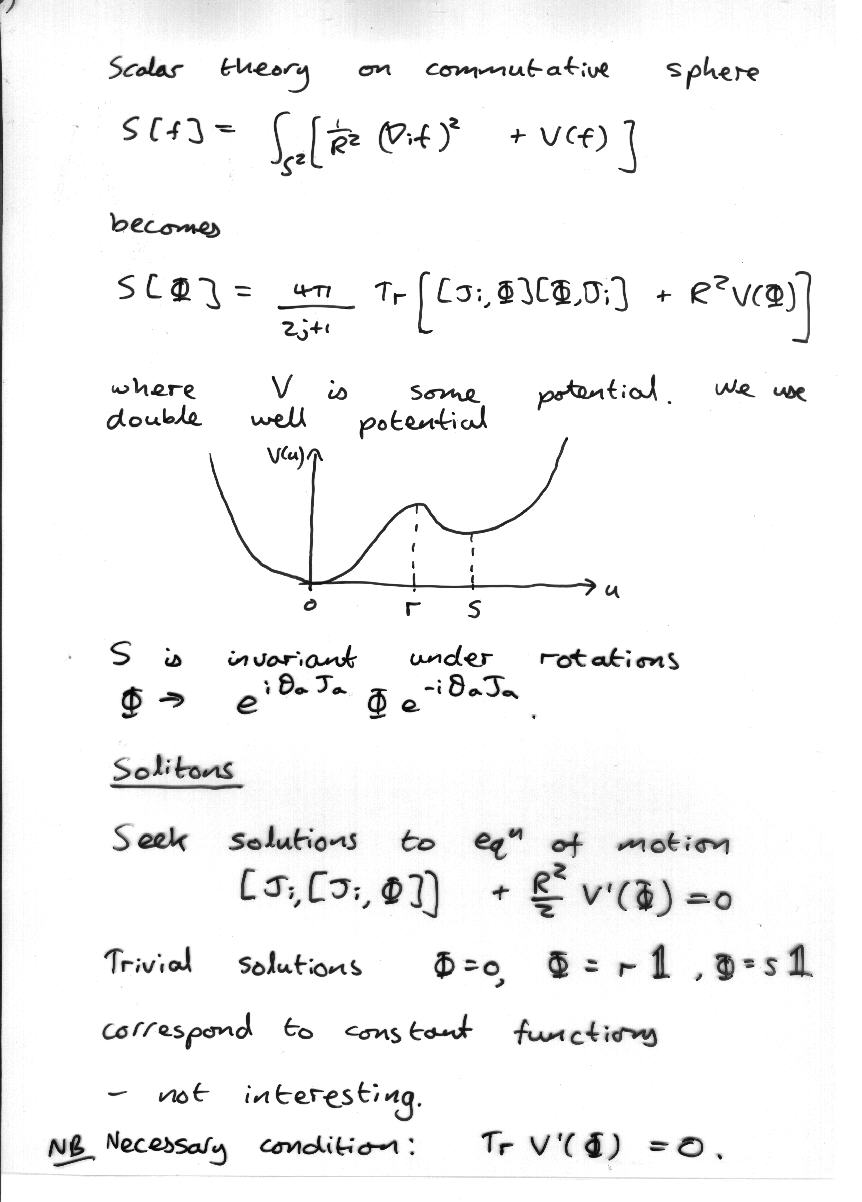 Scalar theory on commutative sphere
S[f] = ∫_{S²} [ 1/R² (∇ᵢf)² + V(f) ]
becomes
S[Φ] = 4π/(2j+1) Tr [ [Jᵢ,Φ][Φ,Jᵢ] + R²V(Φ) ]
where V is some potential. We use
double well potential
V(u)
u
0 r s
S is invariant under rotations
Φ → e^{iθₐJₐ} Φ e^{-iθₐJₐ}.
Solitons
Seek solutions to eqⁿ of motion
[Jᵢ,[Jᵢ,Φ]] + R²/2 V'(Φ) = 0
Trivial solutions Φ=0, Φ = r 𝟙, Φ = s 𝟙
correspond to constant functions
- not interesting.
NB Necessary condition: Tr V'(Φ) = 0.